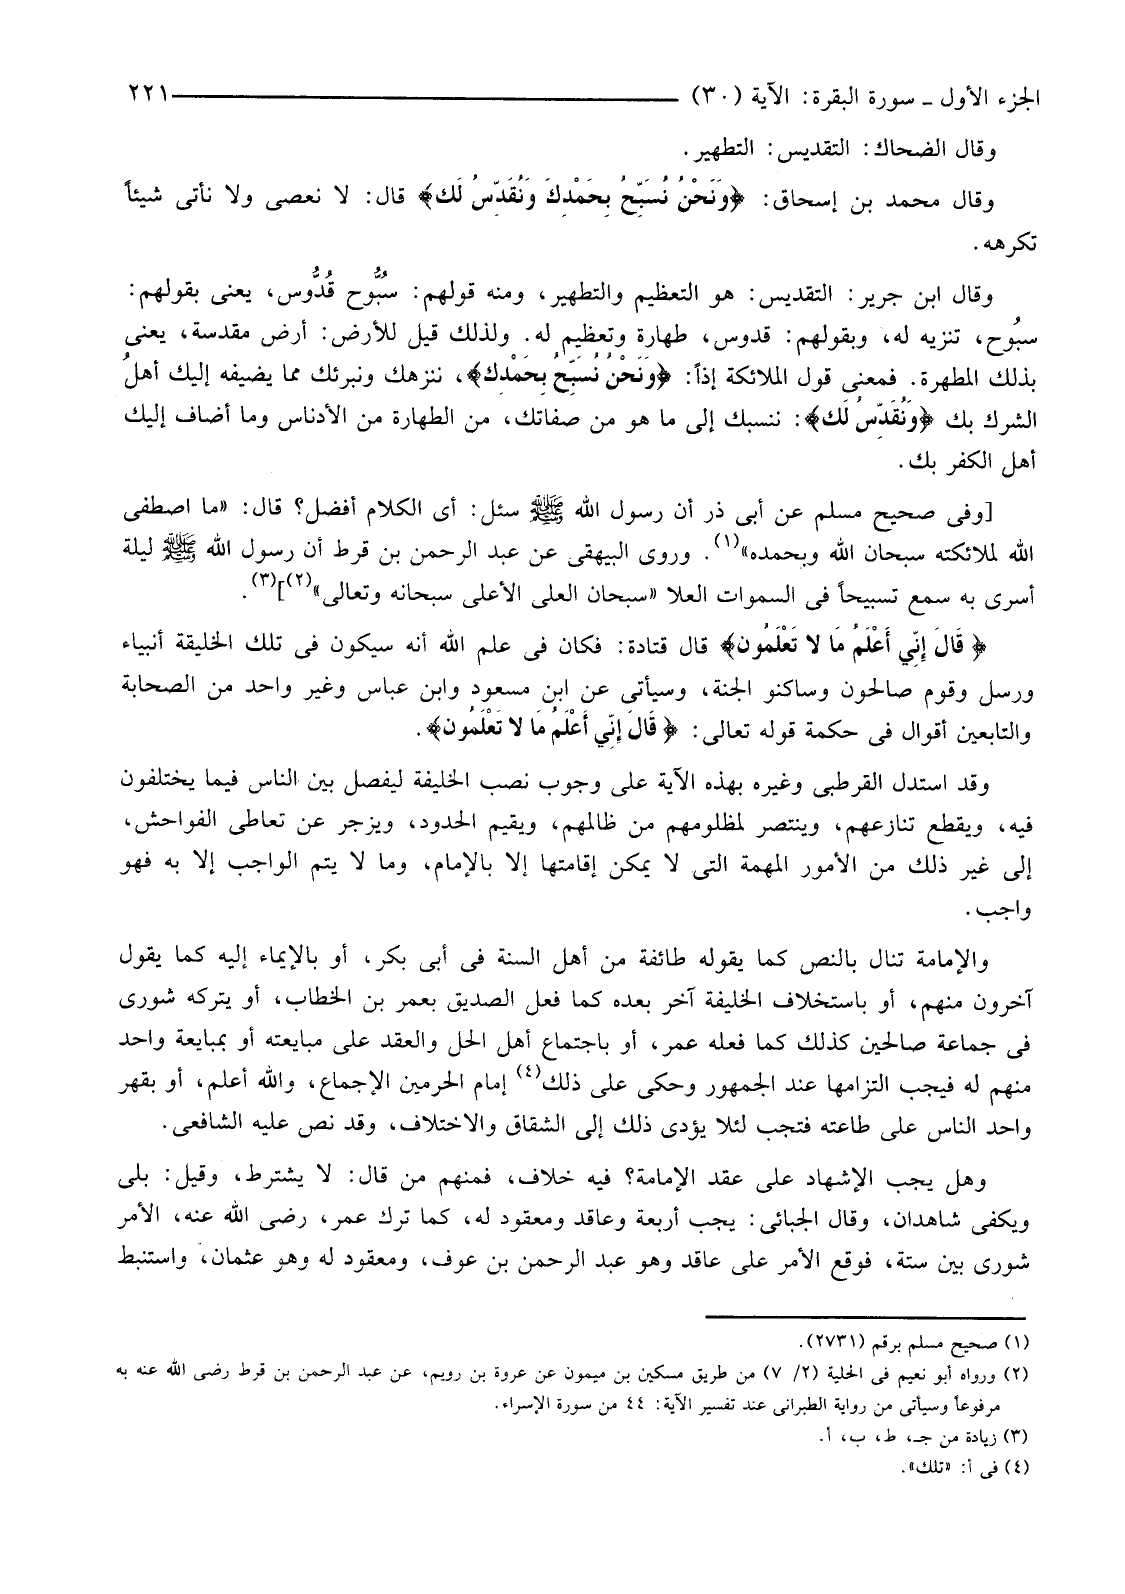 الجزء الأول ـ سورة البقرة: الآية (٣٠) ٢٢١
وقال الضحاك: التقديس: التطهير.
وقال محمد بن إسحاق: ﴿وَنَحْنُ نُسَبِّحُ بِحَمْدِكَ وَنُقَدِّسُ لَكَ﴾ قال: لا نعصى ولا نأتى شيئاً
تكرهه.
وقال ابن جرير: التقديس: هو التعظيم والتطهير، ومنه قولهم: سُبُّوح قُدُّوس، يعنى بقولهم:
سبُوح، تنزيه له، وبقولهم: قدوس، طهارة وتعظيم له. ولذلك قيل للأرض: أرض مقدسة، يعنى
بذلك المطهرة. فمعنى قول الملائكة إذاً: ﴿وَنَحْنُ نُسَبِّحُ بِحَمْدِكَ﴾، ننزهك ونبرئك مما يضيفه إليك أهلُ
الشرك بك ﴿وَنُقَدِّسُ لَكَ﴾: ننسبك إلى ما هو من صفاتك، من الطهارة من الأدناس وما أضاف إليك
أهل الكفر بك.
[وفى صحيح مسلم عن أبى ذر أن رسول الله ﷺ سئل: أى الكلام أفضل؟ قال: «ما اصطفى
الله لملائكته سبحان الله وبحمده»(١). وروى البيهقى عن عبد الرحمن بن قرط أن رسول الله ﷺ ليلة
أسرى به سمع تسبيحاً فى السموات العلا «سبحان العلى الأعلى سبحانه وتعالى»(٢)](٣).
﴿قَالَ إِنِّي أَعْلَمُ مَا لا تَعْلَمُونَ﴾ قال قتادة: فكان فى علم الله أنه سيكون فى تلك الخليقة أنبياء
ورسل وقوم صالحون وساكنو الجنة، وسيأتى عن ابن مسعود وابن عباس وغير واحد من الصحابة
والتابعين أقوال فى حكمة قوله تعالى: ﴿قَالَ إِنِّي أَعْلَمُ مَا لا تَعْلَمُونَ﴾.
وقد استدل القرطبى وغيره بهذه الآية على وجوب نصب الخليفة ليفصل بين الناس فيما يختلفون
فيه، ويقطع تنازعهم، وينتصر لمظلومهم من ظالمهم، ويقيم الحدود، ويزجر عن تعاطى الفواحش،
إلى غير ذلك من الأمور المهمة التى لا يمكن إقامتها إلا بالإمام، وما لا يتم الواجب إلا به فهو
واجب.
والإمامة تنال بالنص كما يقوله طائفة من أهل السنة فى أبى بكر، أو بالإيماء إليه كما يقول
آخرون منهم، أو باستخلاف الخليفة آخر بعده كما فعل الصديق بعمر بن الخطاب، أو يتركه شورى
فى جماعة صالحين كذلك كما فعله عمر، أو باجتماع أهل الحل والعقد على مبايعته أو بمبايعة واحد
منهم له فيجب التزامها عند الجمهور وحكى على ذلك(٤) إمام الحرمين الإجماع، والله أعلم، أو بقهر
واحد الناس على طاعته فتجب لئلا يؤدى ذلك إلى الشقاق والاختلاف، وقد نص عليه الشافعى.
وهل يجب الإشهاد على عقد الإمامة؟ فيه خلاف، فمنهم من قال: لا يشترط، وقيل: بلى
ويكفى شاهدان، وقال الجبائى: يجب أربعة وعاقد ومعقود له، كما ترك عمر، رضى الله عنه، الأمر
شورى بين ستة، فوقع الأمر على عاقد وهو عبد الرحمن بن عوف، ومعقود له وهو عثمان، واستنبط
(١) صحيح مسلم برقم (٢٧٣١).
(٢) ورواه أبو نعيم فى الحلية (٢/ ٧) من طريق مسكين بن ميمون عن عروة بن رويم، عن عبد الرحمن بن قرط رضى الله عنه به
مرفوعاً وسيأتى من رواية الطبرانى عند تفسير الآية: ٤٤ من سورة الإسراء.
(٣) زيادة من جـ، ط، ب، أ.
(٤) فى أ: «تلك».